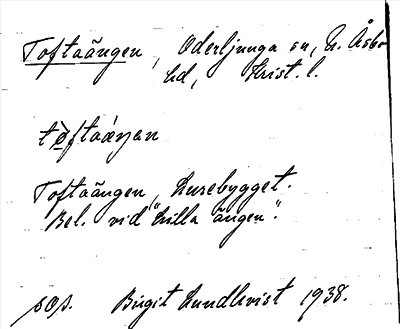 Toftaängen, Oderljunga sn, N. Åsbo
hd, Krist. l.
tòftaæ̀ŋan
Toftaängen, Lurebygget.
Bel. vid "Lilla ängen".
sös. Birgit Lundkvist 1938.